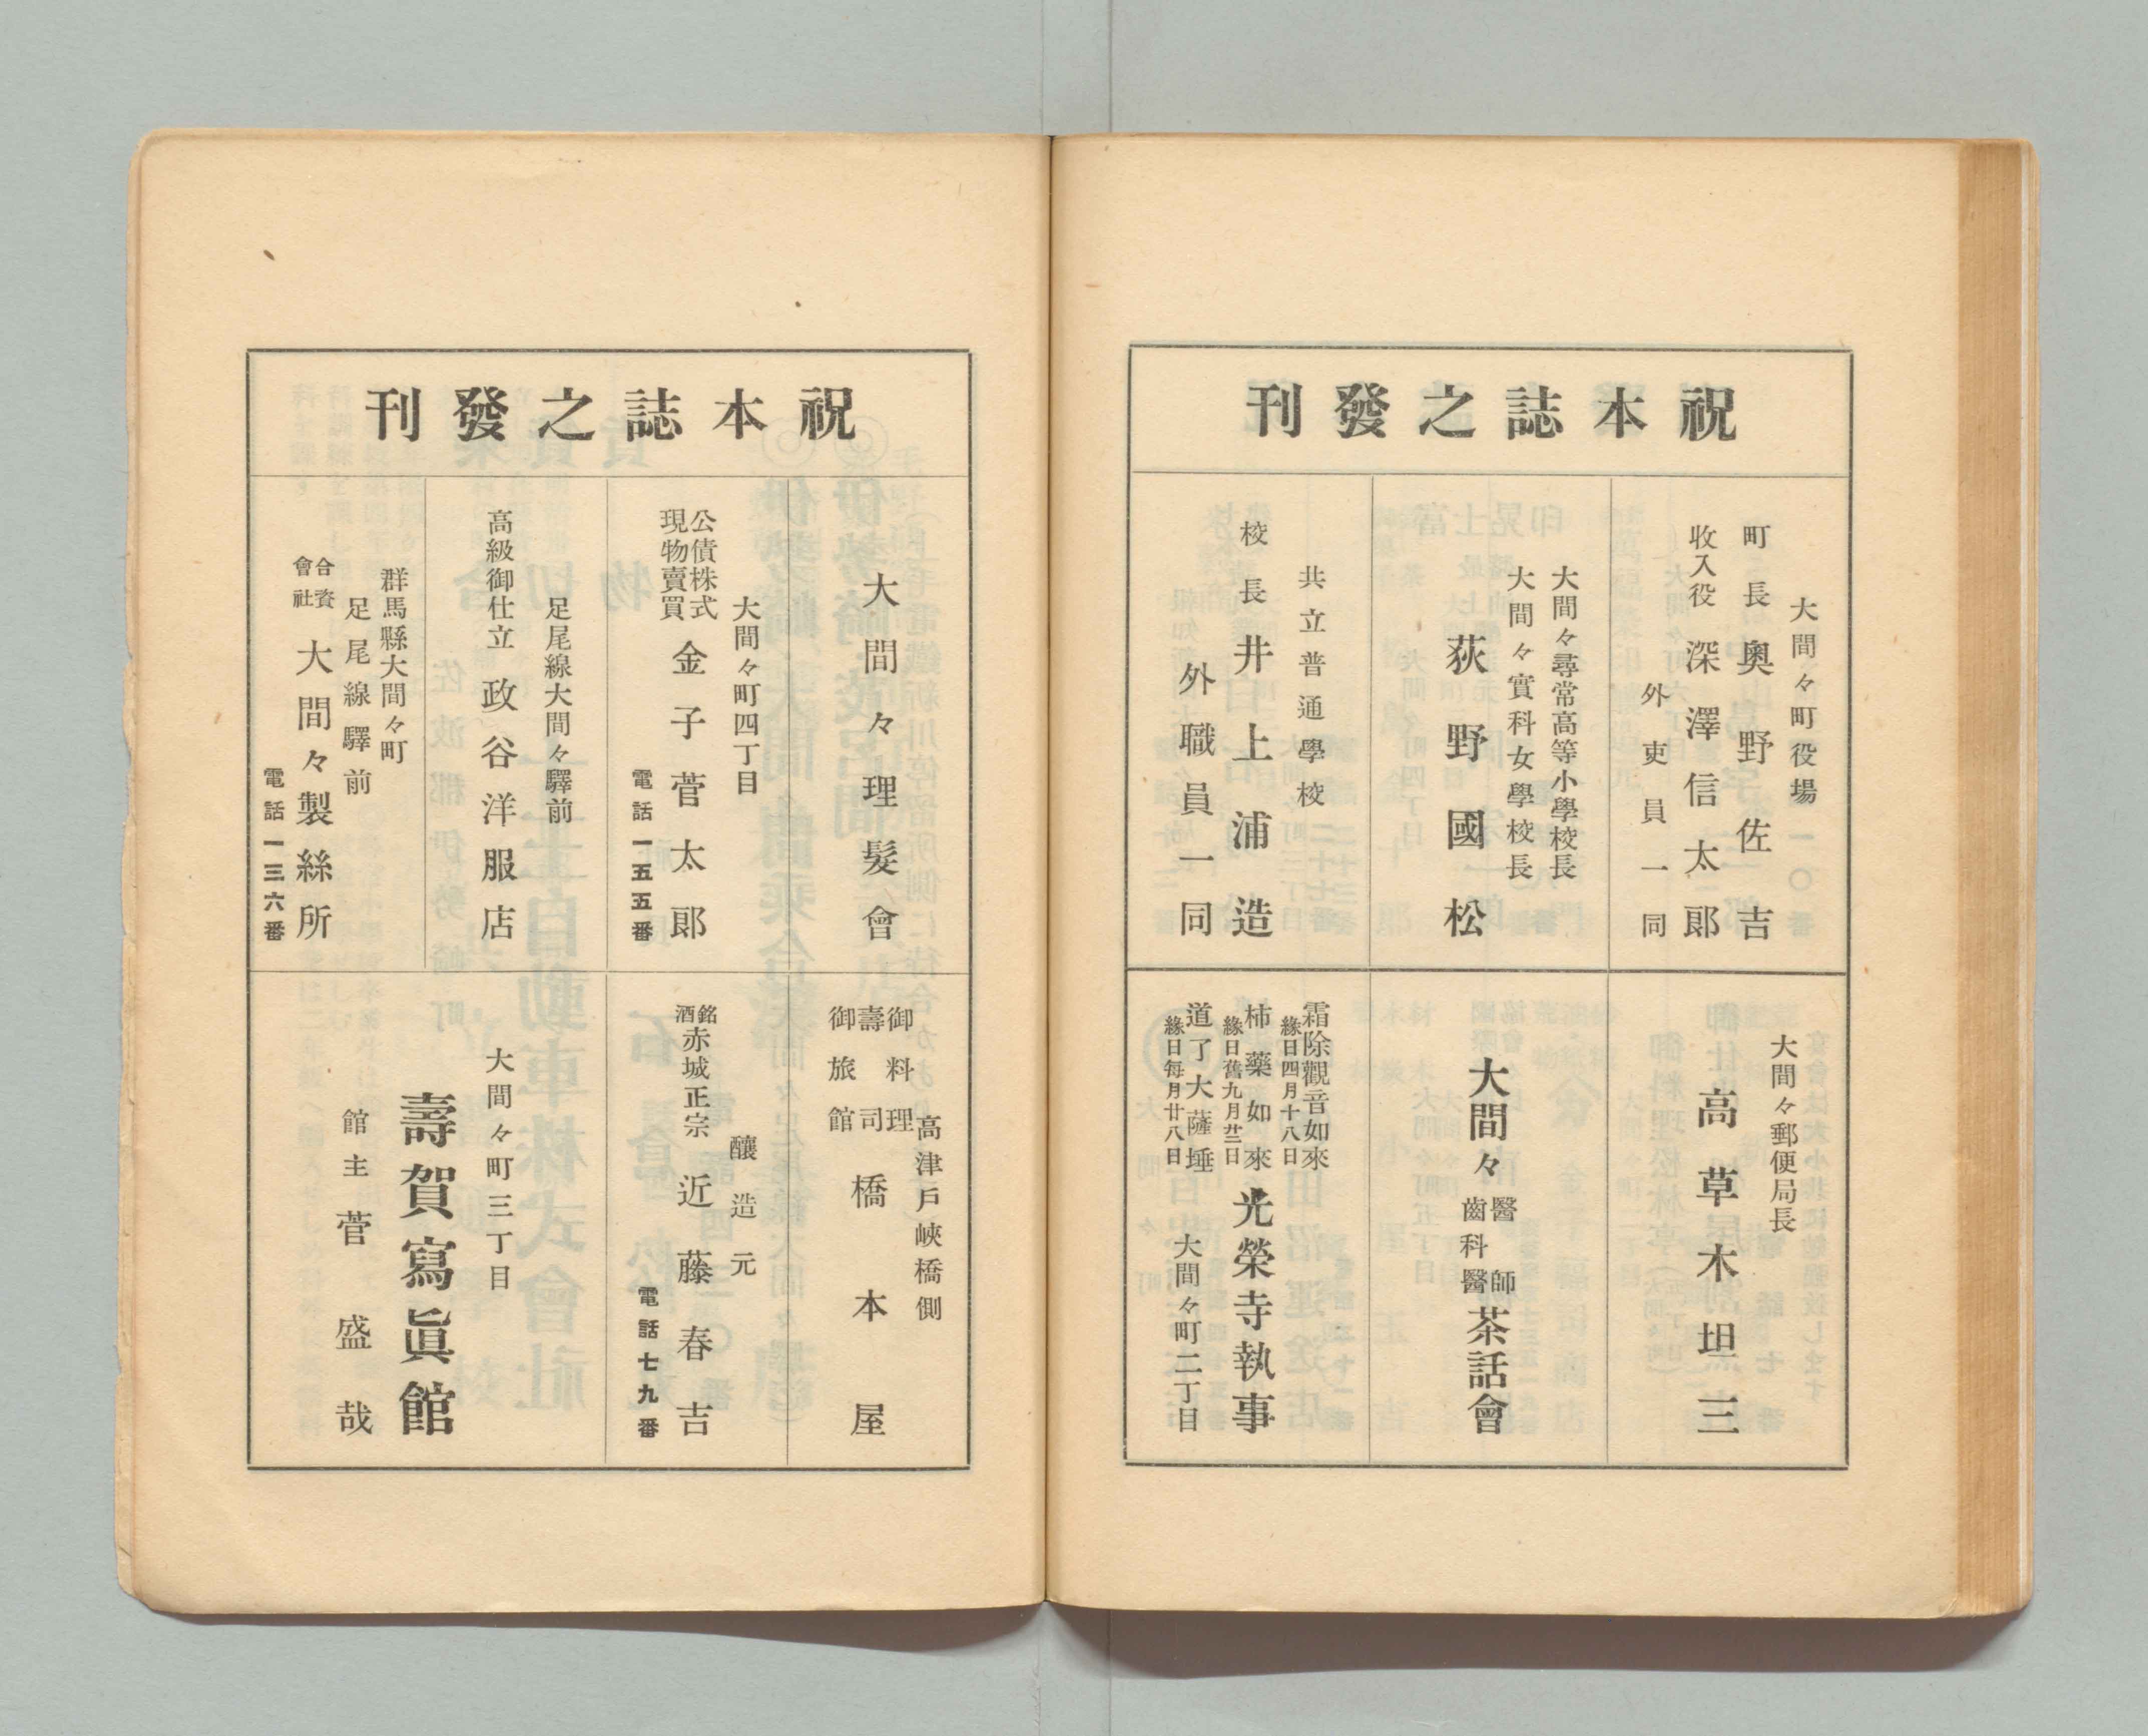 祝本誌之發刊
大間々町役場
町長 奧野佐吉
收入役 深澤信太郎
外吏員一同
大間々尋常高等小學校長
大間々實科女學校長
荻野國松
共立普通學校
校長 井上浦造
外職員一同
大間々郵便局長
高草木坦三
大間々
醫師
齒科醫
茶話會
霜除觀音如來
緣日四月十八日
柿藥如來
緣日舊九月廿二日
道了大薩埵
緣日每月廿八日
光榮寺執事
大間々町二丁目
祝本誌之發刊
大間々理髮會
大間々町四丁目
公債株式
現物賣買
金子菅太郎
電話一五五番
足尾線大間々驛前
高級御仕立 政谷洋服店
群馬縣大間々町
足尾線驛前
合資
會社
大間々製絲所
電話一三六番
高津戶峽橋側
御料理
壽司
御旅館
橋本屋
釀造元
銘酒 赤城正宗 近藤春吉
電話七九番
大間々町三丁目
壽賀寫眞館
館主 菅盛哉